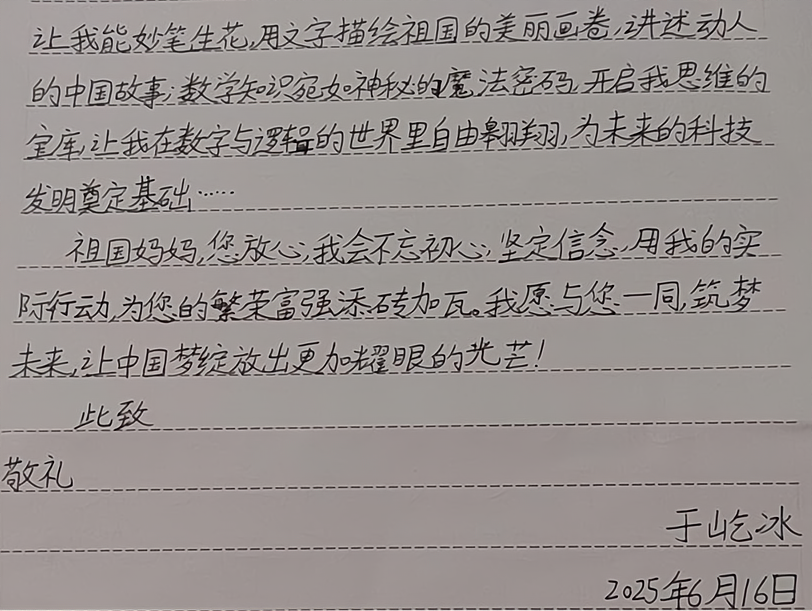 让我能妙笔生花,用文字描绘祖国的美丽画卷,讲述动人
的中国故事;数学知识宛如神秘的魔法密码,开启我思维的
宝库,让我在数字与逻辑的世界里自由翱翔,为未来的科技
发明奠定基础……
祖国妈妈,您放心,我会不忘初心,坚定信念,用我的实
际行动,为您的繁荣富强添砖加瓦。我愿与您一同,筑梦
未来,让中国梦绽放出更加耀眼的光芒!
此致
敬礼
于屹冰
2025年6月16日